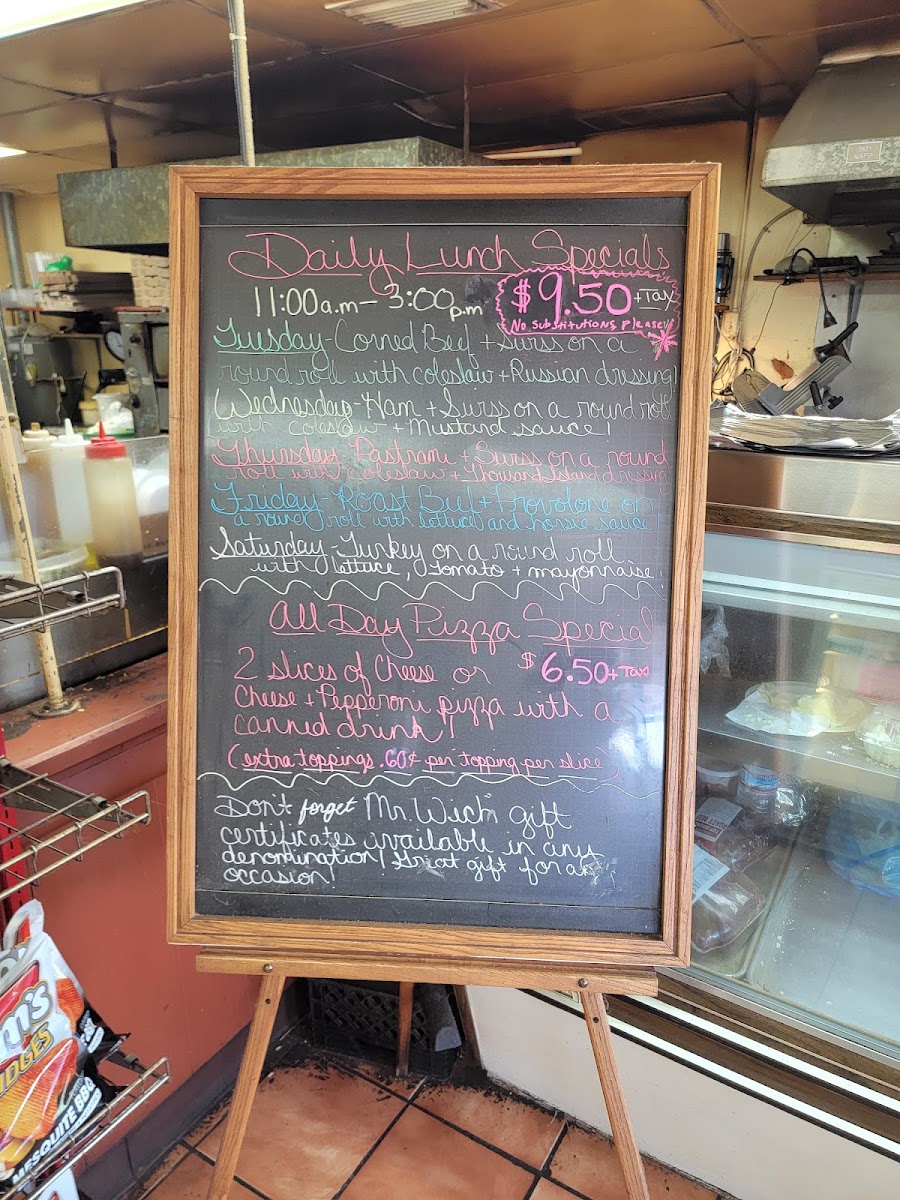 Daily Lunch Specials
11:00 a.m - 3:00 p.m
$9.50 + Tax
No Substitutions Please!
Tuesday - Corned Beef + Swiss on a
round roll with coleslaw + Russian dressing!
Wednesday - Ham + Swiss on a round roll
with coleslaw + Mustard sauce!
Thursday - Pastrami + Swiss on a round
roll with coleslaw + Thousand Island dressing
Friday - Roast Beef + Provolone on
a round roll with lettuce and horsie sauce
Saturday - Turkey on a round roll
with lettuce, tomato + mayonnaise!
All Day Pizza Special
2 slices of Cheese or $6.50 + Tax
Cheese + Pepperoni pizza with a
canned drink!
(extra toppings .60¢ per topping per slice)
Don't forget Mr. Wich gift
certificates available in any
denomination! Great gift for an
occasion!
MESQUITE BBQ